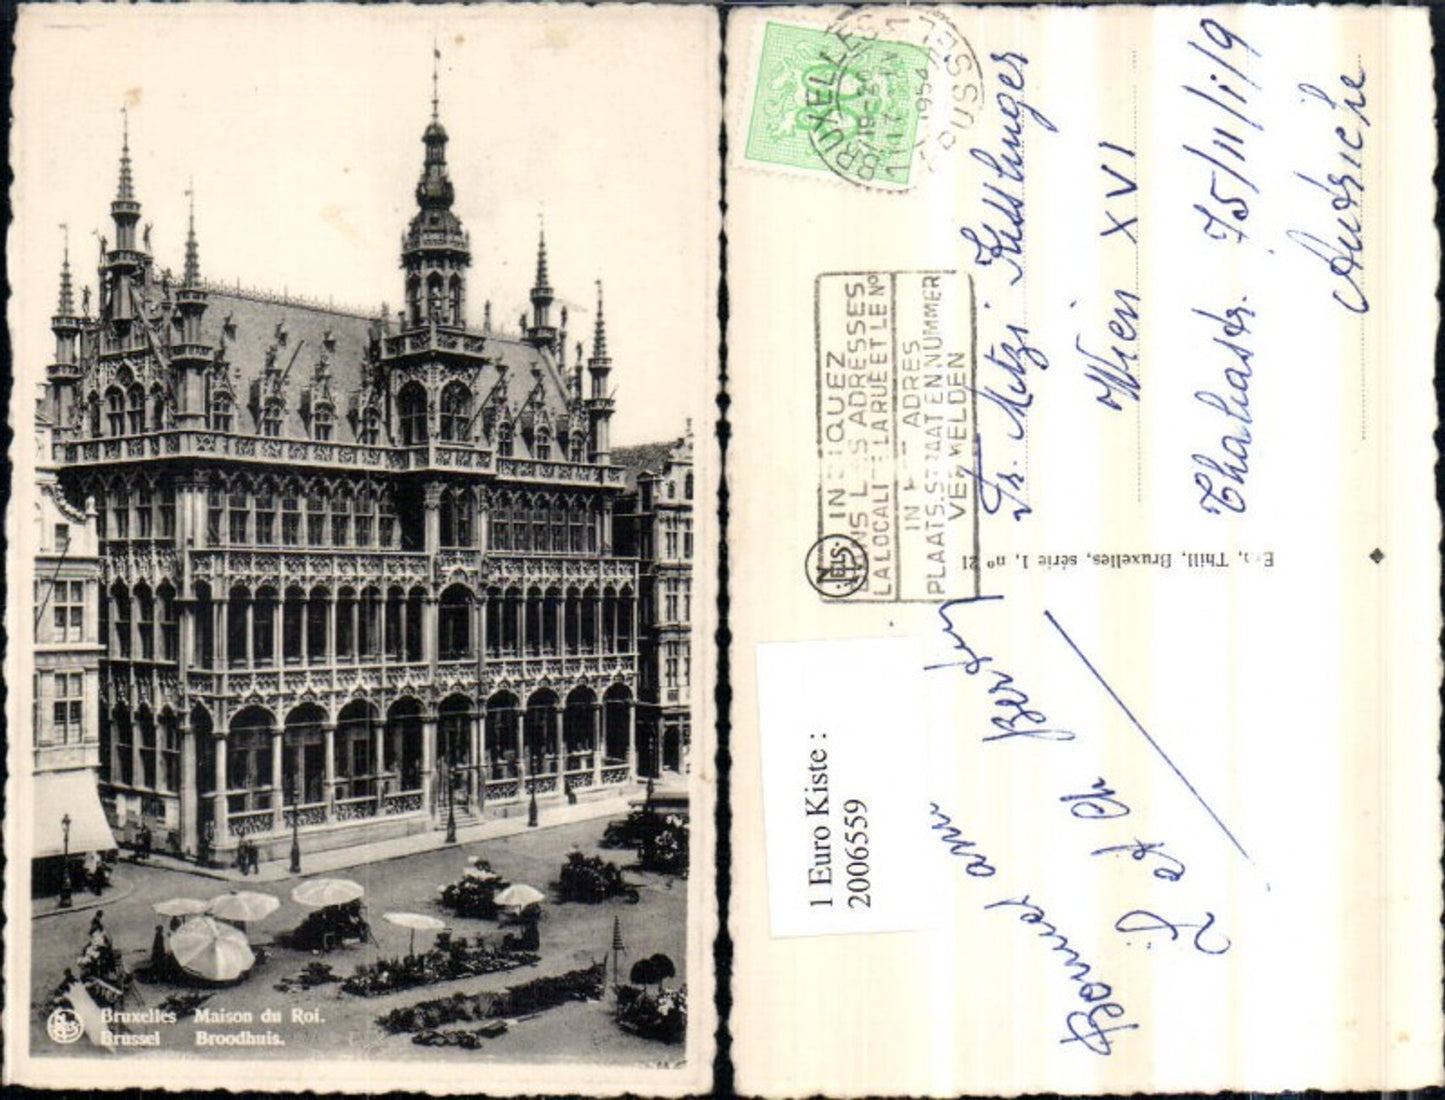 Bruxelles Maison du Roi.
Brussel Broodhuis.
NELS
BRUXELLES
18-
1954
BRUSSEL
INDIQUEZ
DANS LES ADRESSES
LA LOCALITE LA RUE ET LE No
IN ADRES
PLAATS.STRAAT EN NUMMER
VERMELDEN
NELS
Ern. Thill, Bruxelles, série 1, no 21
1 Euro Kiste :
2006559
Fr. Mitzi
Wien XVI
Thaliastr. 75/11/1/9
Autriche